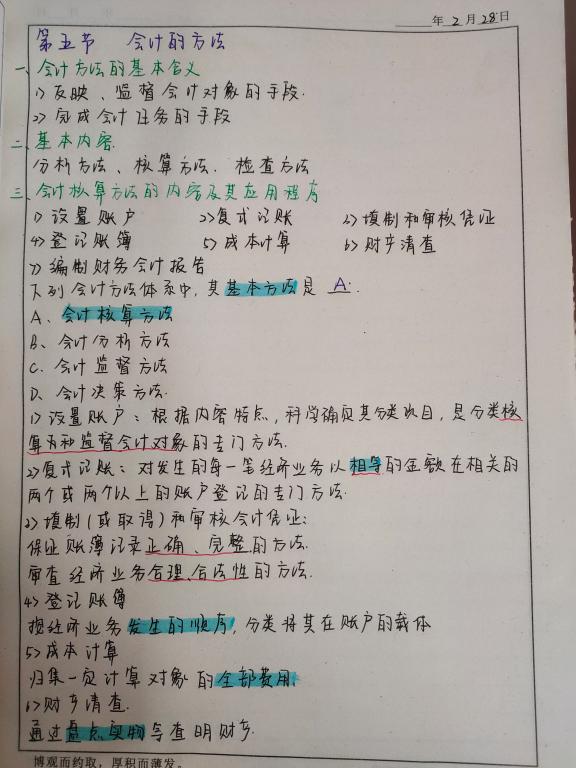 年 2 月 28 日
第五节 会计的方法
一、会计方法的基本含义
1) 反映、监督会计对象的手段.
2) 完成会计任务的手段
二、基本内容.
分析方法、核算方法、检查方法
三、会计核算方法的内容及其应用程序
1) 设置账户 2) 复式记账 3) 填制和审核凭证
4) 登记账簿 5) 成本计算 6) 财产清查
7) 编制财务会计报告
下列会计方法体系中,其基本方法是 A.
A、会计核算方法
B、会计分析方法
C、会计监督方法
D、会计决策方法.
1) 设置账户:根据内容特点,科学确定其分类项目,是分类核
算和监督会计对象的专门方法.
2) 复式记账:对发生的每一笔经济业务以相等的金额在相关的
两个或两个以上的账户登记的专门方法.
3) 填制(或取得)和审核会计凭证:
保证账簿记录正确、完整的方法.
审查经济业务合理、合法性的方法.
4) 登记账簿
按经济业务发生的顺序,分类将其在账户的载体
5) 成本计算
归集一定计算对象的全部费用.
6) 财产清查.
通过盘点实物等查明财产.
博观而约取,厚积而薄发。